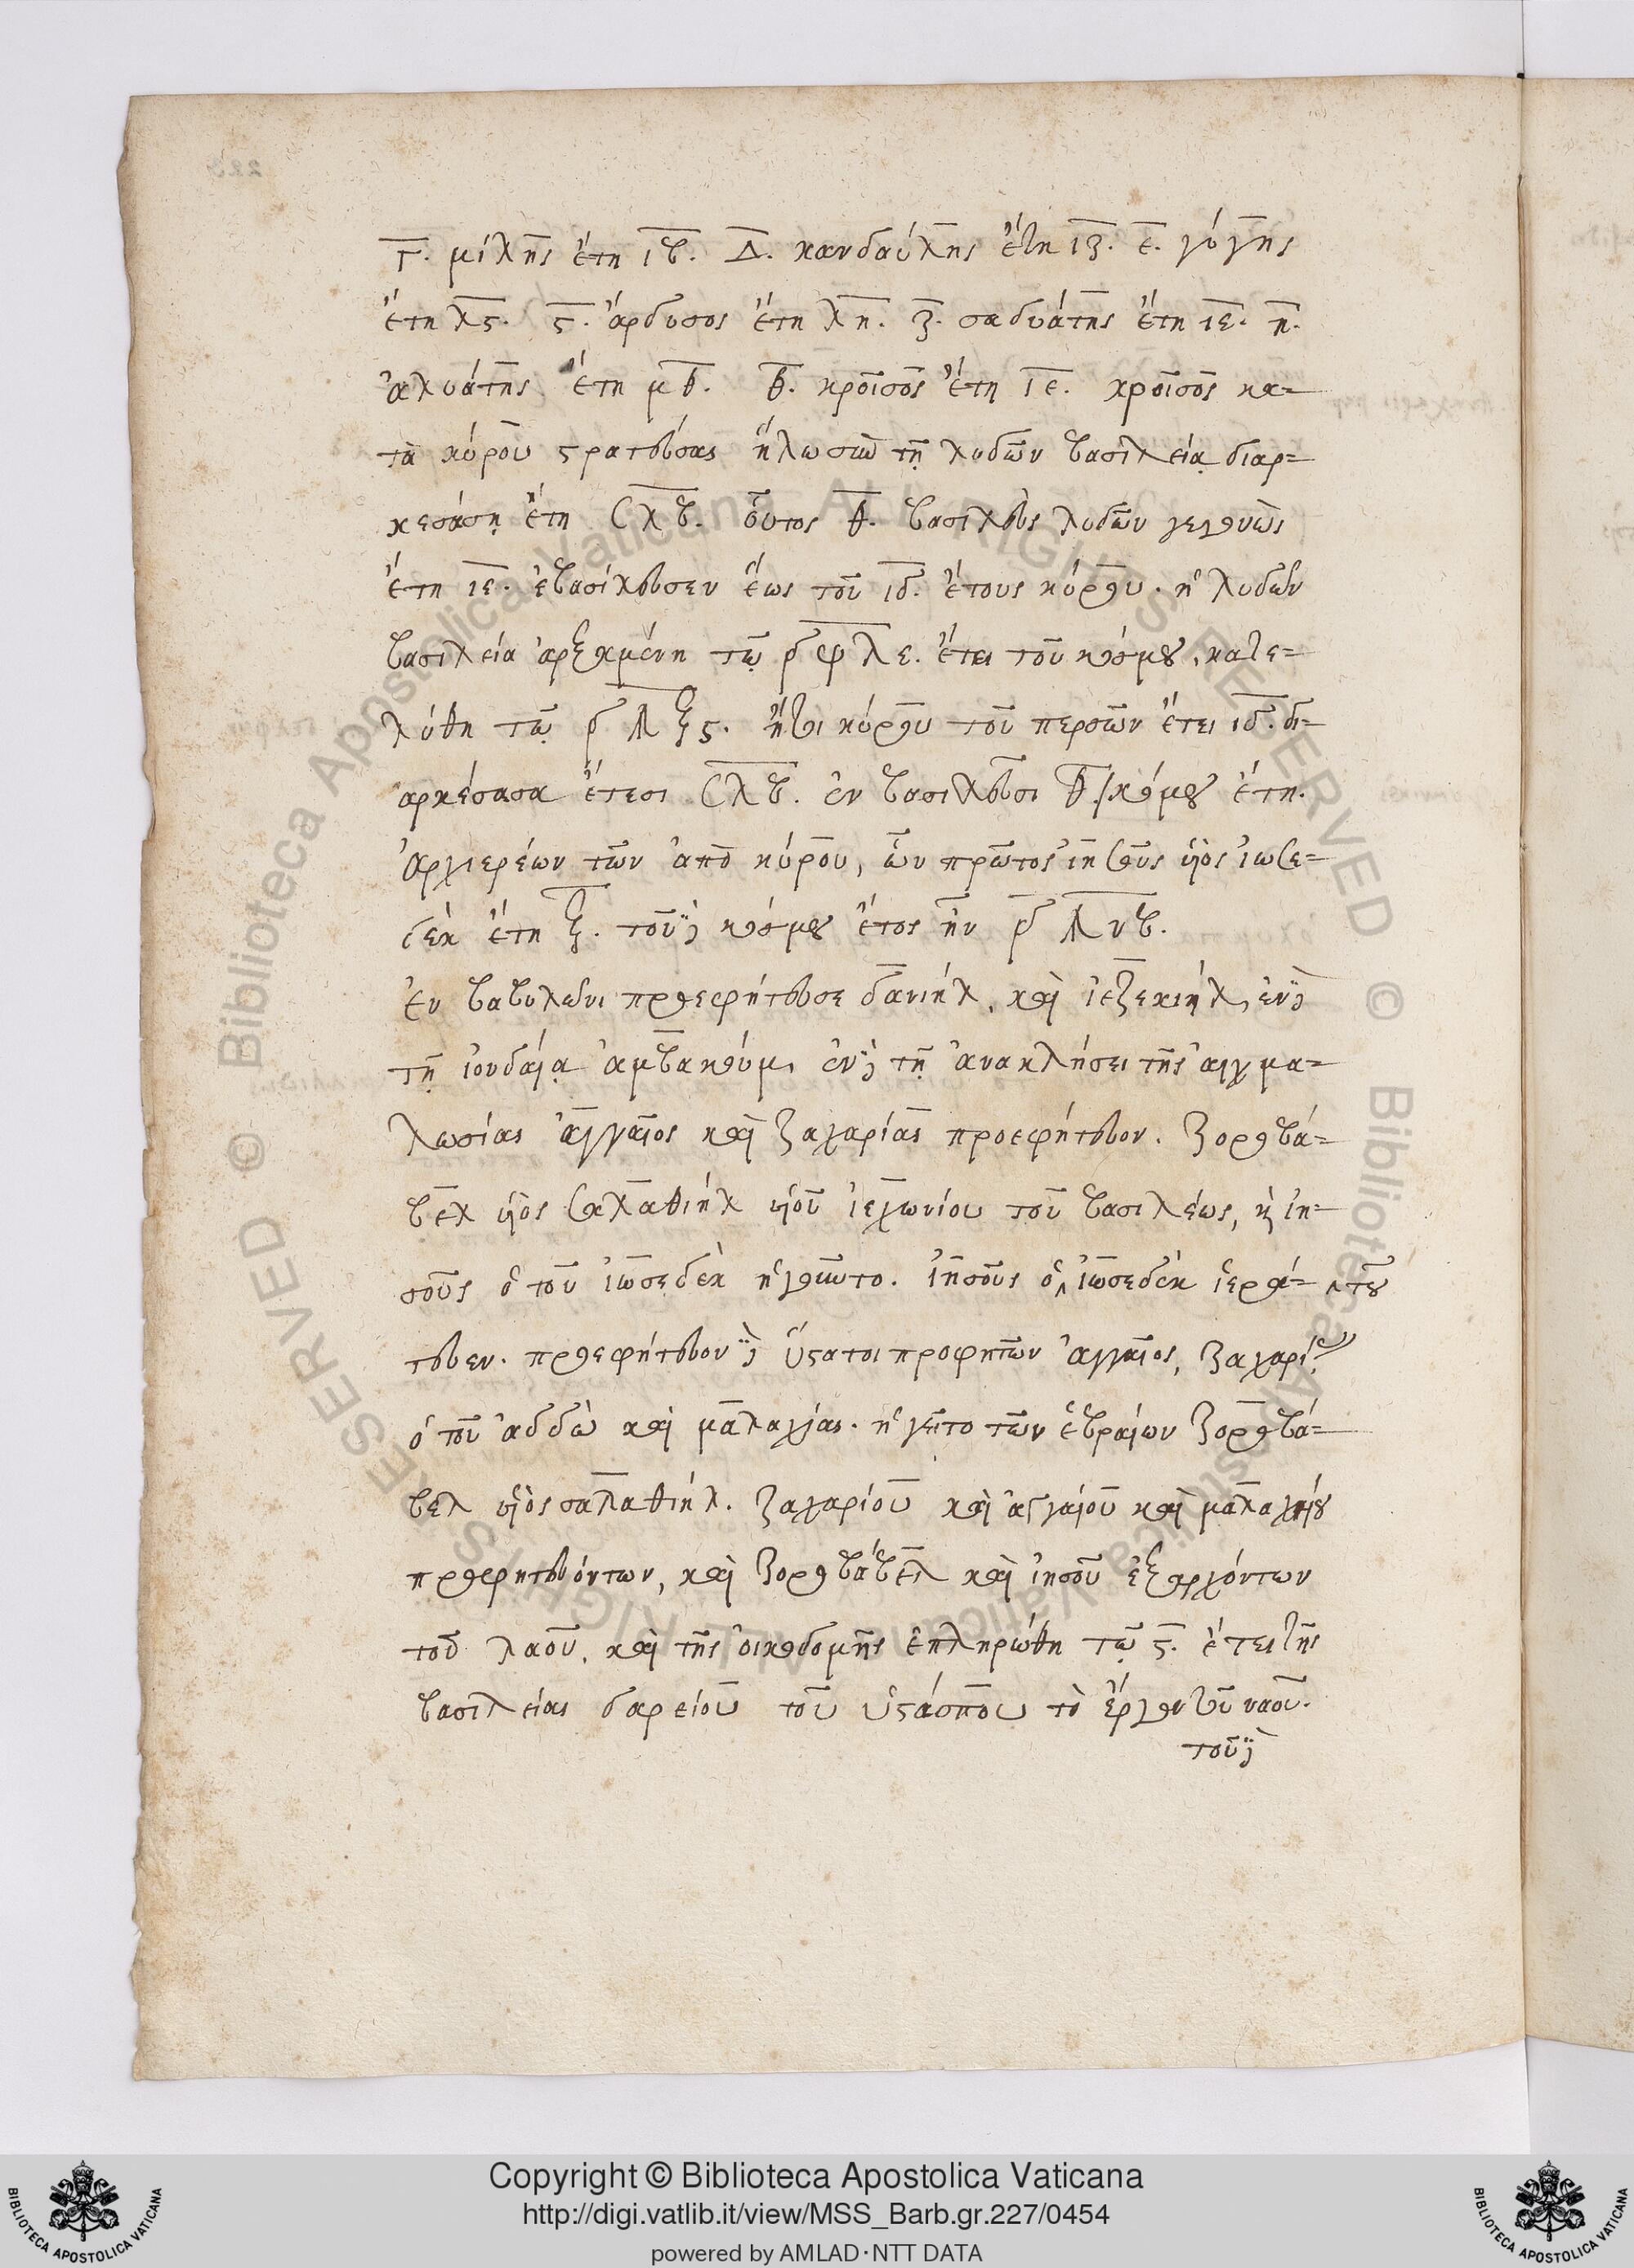 Γ. μίλης ἔτη ιβ. Δ. κανδαύλης ἔτη ιζ. ε. γύγης
ἔτη λϛ. ϛ. ἄρδυσος ἔτη λη. ζ. σαδυάτης ἔτη ιε. η.
ἀλυάτης ἔτη μθ. θ. κροῖσος ἔτη ιε. κροῖσος κα=
τὰ κύρου στρατεύσας ἥλω σὺν τῇ λυδῶν βασιλείᾳ διαρ=
κεσάσῃ ἔτη σλβ. οὗτος θ. βασιλεὺς λυδῶν γεγονὼς
ἔτη ιε. ἐβασίλευσεν ἕως τοῦ ιδ. ἔτους κύρου. ἡ λυδῶν
βασιλεία ἀρξαμένη τῷ ͵δψλε. ἔτει τοῦ κόσμου, κατε=
λύθη τῷ ͵δϡξϛ. ἤτοι κύρου τοῦ περσῶν ἔτει ιδ. δι=
αρκέσασα ἔτεσι σλβ. ἐν βασιλεῦσι θ./κόσμου ἔτη.
ἀρχιερέων τῶν ἀπὸ κύρου, ὧν πρῶτος ἰησοῦς υἱὸς ἰωσε=
δὲκ ἔτη ξ. τοῦ δὲ κόσμου ἔτος ἦν ͵δϡνβ.
ἐν βαβυλῶνι προεφήτευσε δανιήλ, καὶ ἰεζεκιήλ, ἐν δὲ
τῇ ἰουδαίᾳ ἀμβακούμ, ἐν δὲ τῇ ἀνακλήσει τῆς αἰχμα=
λωσίας ἀγγαῖος καὶ ζαχαρίας προεφήτευον. ζοροβά=
βελ υἱὸς σαλαθιὴλ υἱοῦ ἰεχωνίου τοῦ βασιλέως, κὶ ἰη=
σοῦς ὁ τοῦ ἰωσεδὲκ ἡγοῦντο. ἰησοῦς ὁ ἰωσεδὲκ ἱερά= τοῦ
τευεν. προεφήτευον δὲ ὕστατοι προφητῶν ἀγγαῖος, ζαχαρίας
ὁ τοῦ ἀδδὼ καὶ μαλαχίας. ἡγεῖτο τῶν ἑβραίων ζοροβά=
βελ υἱὸς σαλαθιήλ. ζαχαρίου καὶ ἀγγαίου καὶ μαλαχίου
προφητευόντων, καὶ ζοροβάβελ καὶ ἰησοῦ ἐξαρχόντων
τοῦ λαοῦ, καὶ τῆς οἰκοδομῆς ἐπληρώθη τῷ ϛ. ἔτει τῆς
βασιλείας δαρείου τοῦ ὑστάσπου τὸ ἔργον τοῦ ναοῦ.
τοῦ δὲ
Copyright © Biblioteca Apostolica Vaticana
http://digi.vatlib.it/view/MSS_Barb.gr.227/0454
powered by AMLAD·NTT DATA